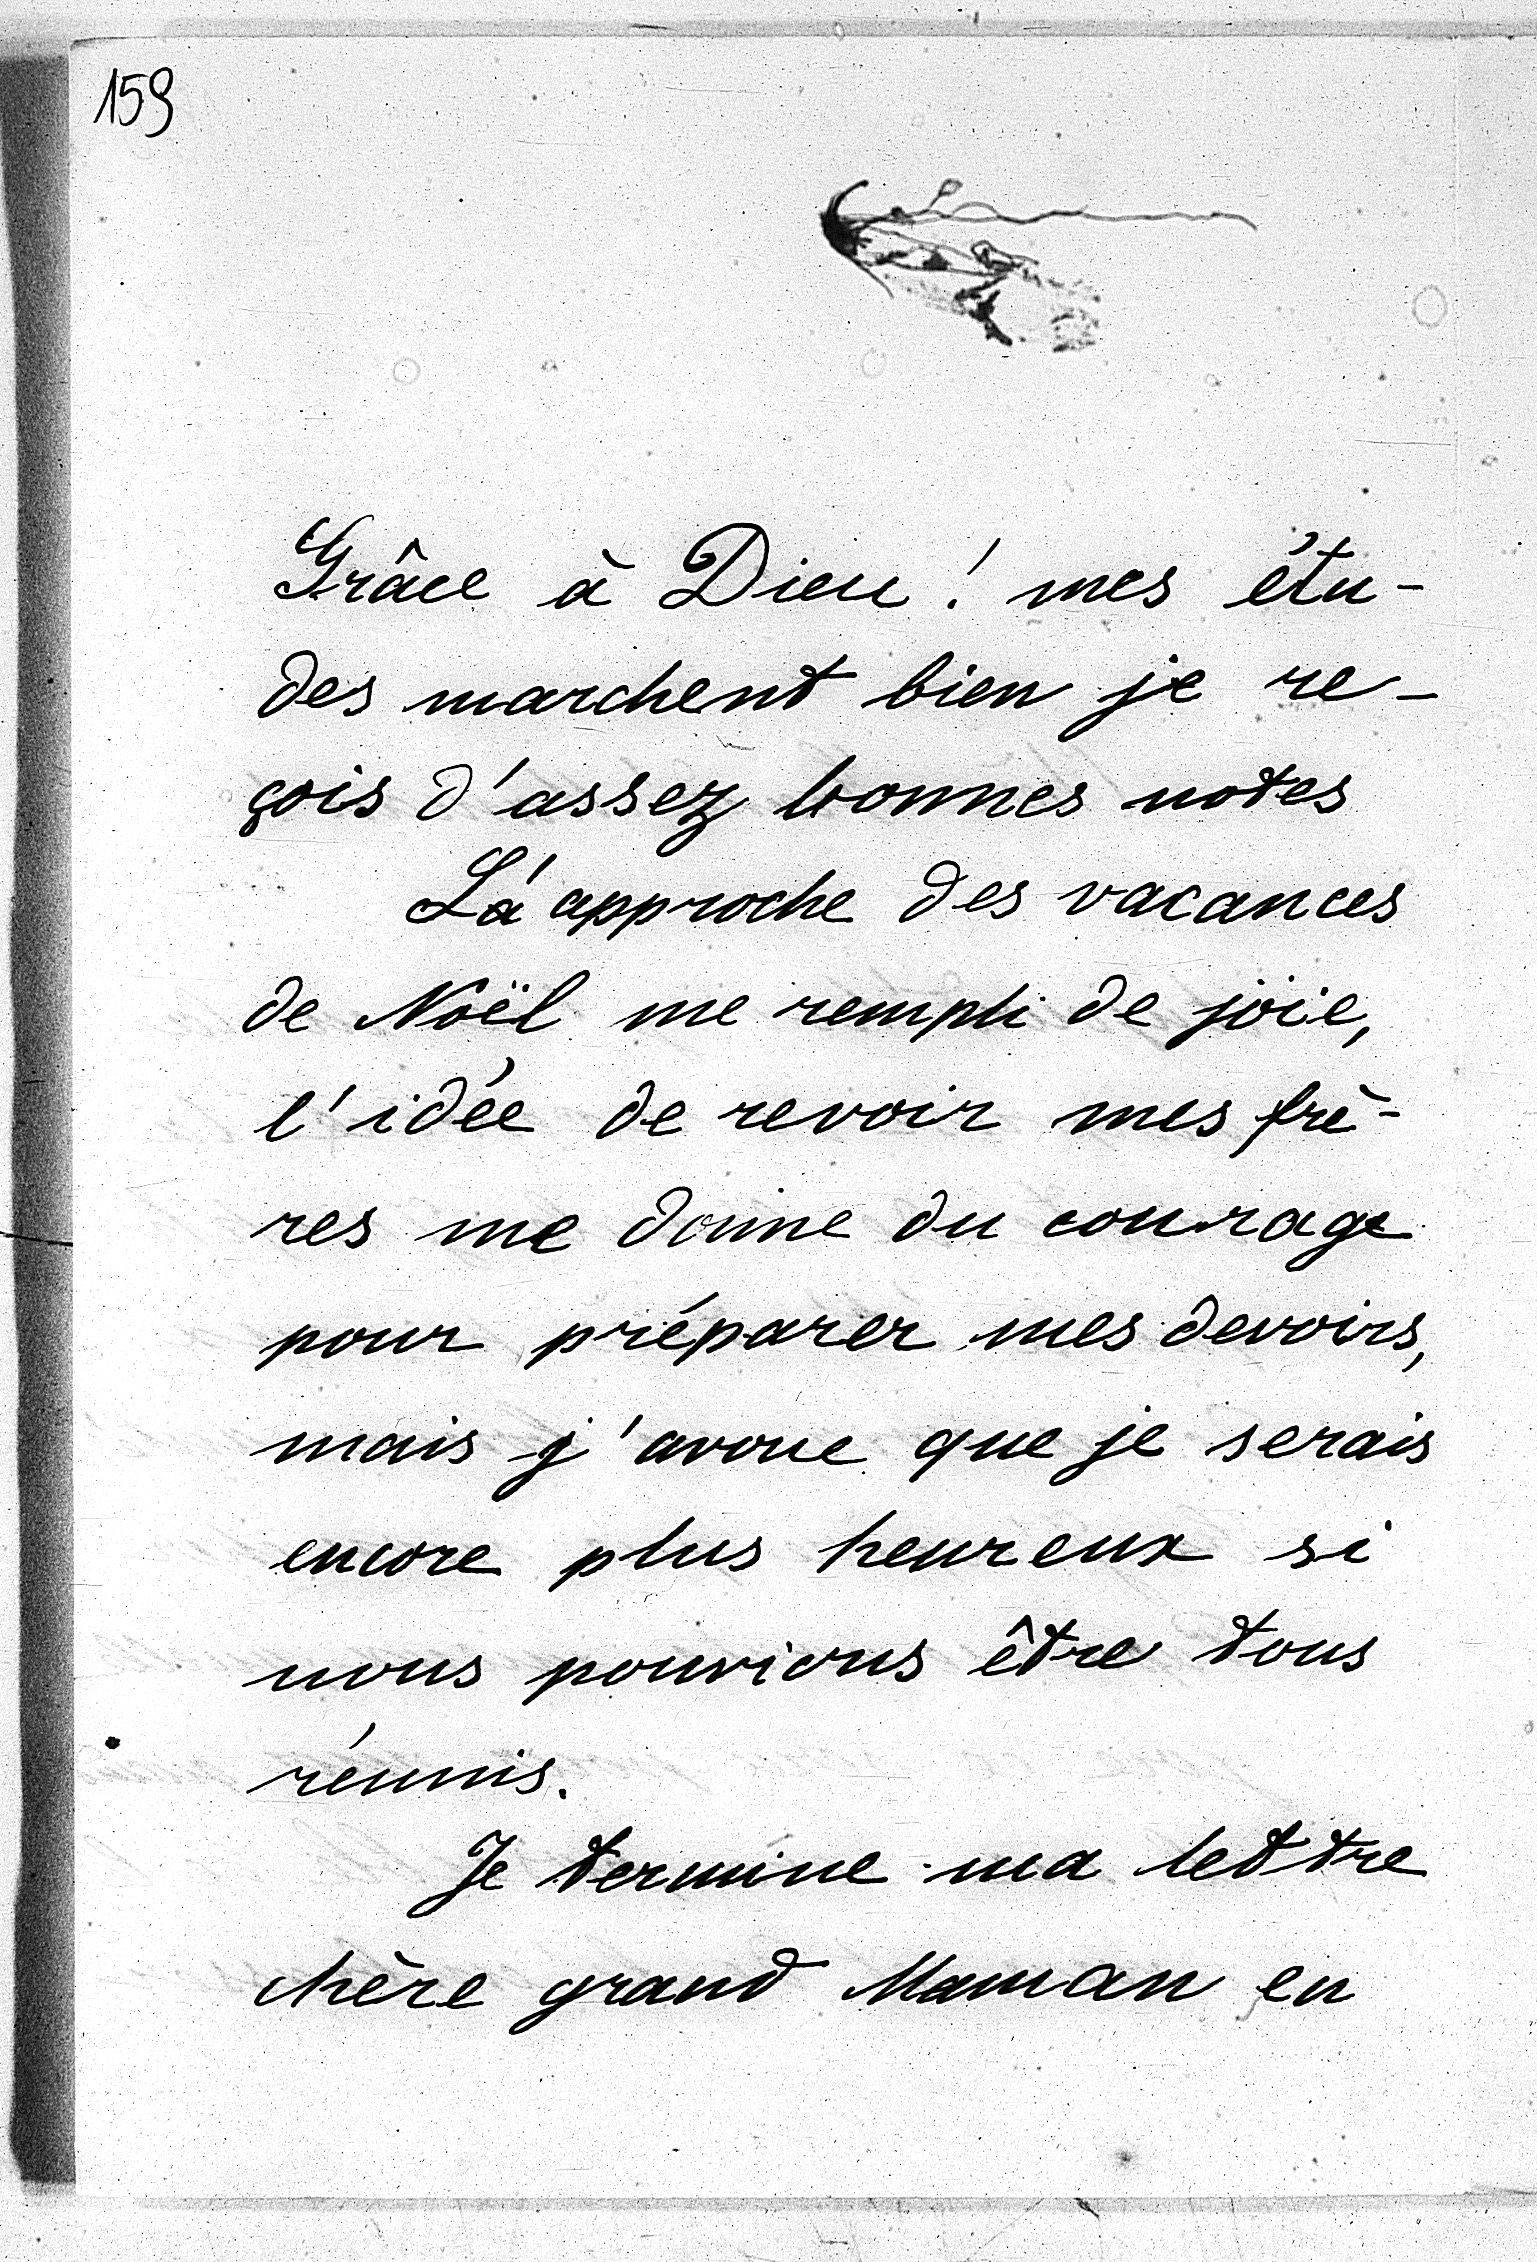 159
Grâce à Dieu ! mes étu-
des marchent bien je re-
çois d'assez bonnes notes
L'approche des vacances
de Noël me rempli de joie,
l'idée de revoir mes frè-
res me donne du courage
pour préparer mes devoirs,
mais j'avoue que je serais
encore plus heureux si
nous pouvions être tous
réunis.
Je termine ma lettre
chère grand Maman en